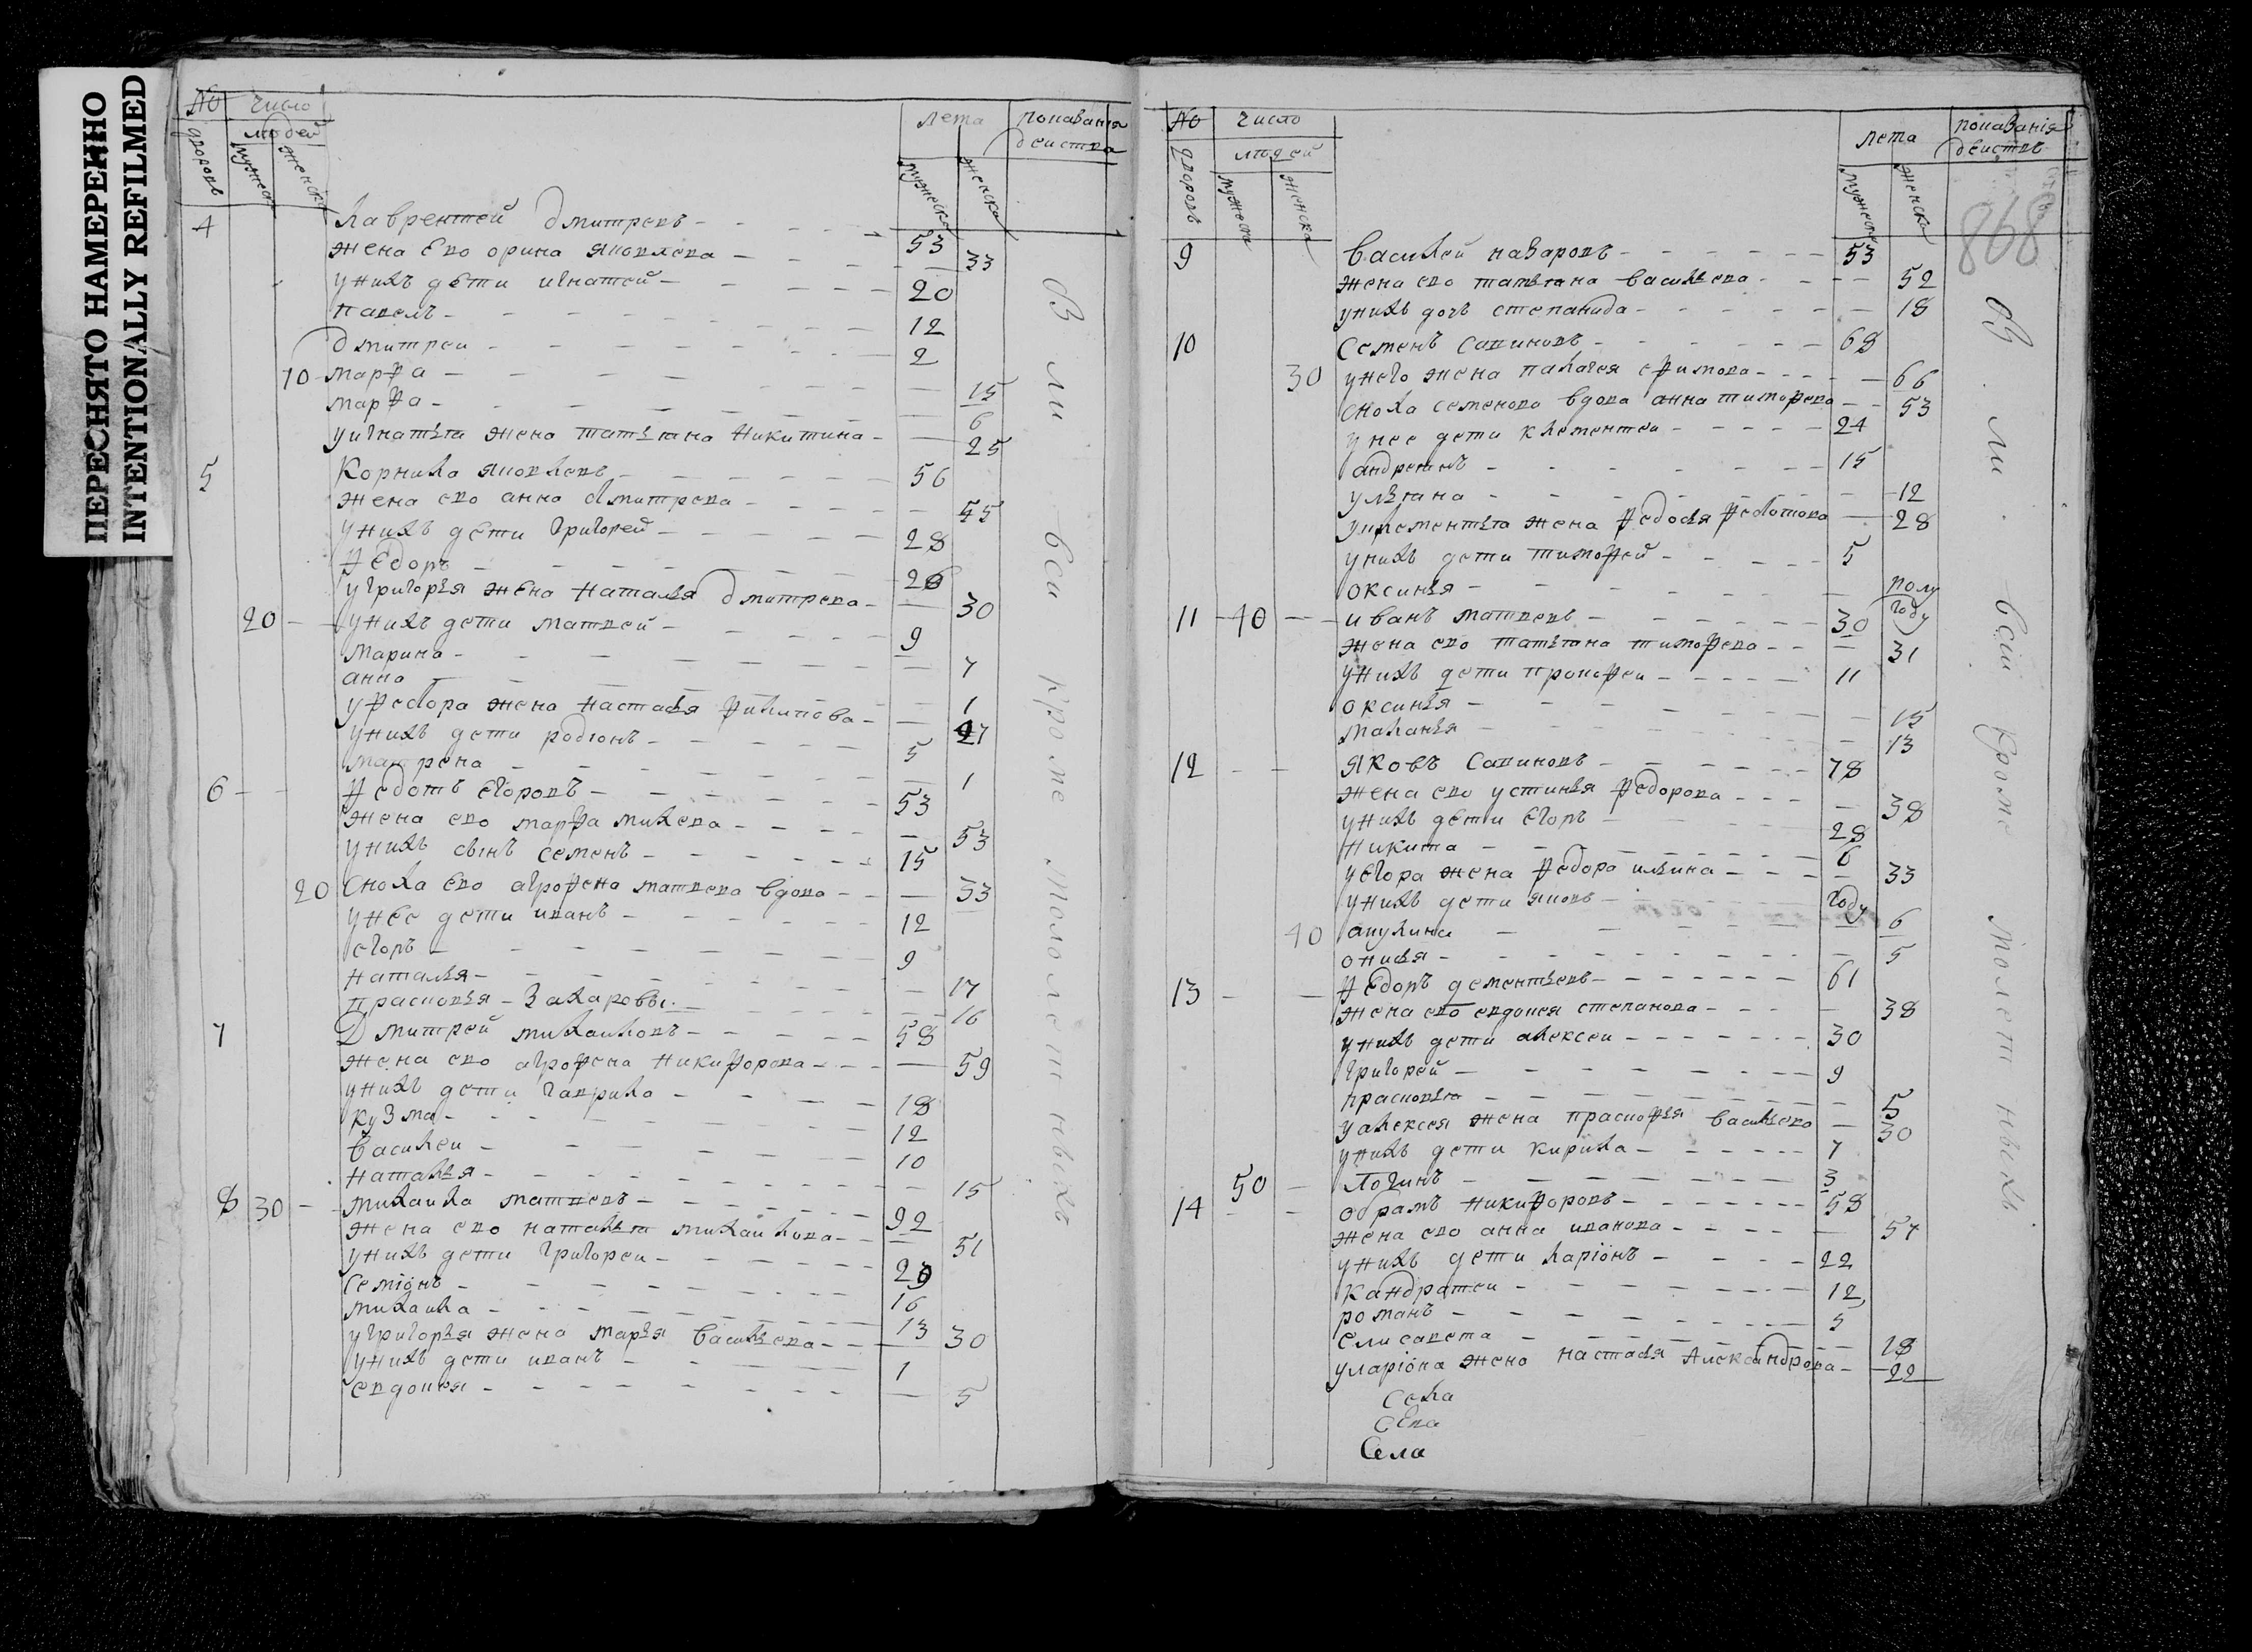 ПЕРЕСНЯТО НАМЕРЕННО
INTENTIONALLY REFILMED
№ дворовъ
Число людей
мужеска женска
Лета
мужеска женска
показания действа
4 Лаврентей Дмитревъ 53
жена ево орина яковлева 33
у нихъ дети игнатей 20
павелъ 12
дмитреи 2
10 марфа 15
марфа 6
у игнатья жена татьяна никитина 25
5 Корнила яковлевъ 56
жена ево анна дмитрева 55
у нихъ дети григорей 28
Федоръ 26
у григорья жена наталья дмитрева 30
20 у нихъ дети матвей 9
марина 7
анна 1
у федора жена настасья филипова 27
у нихъ дети родионъ 5
матрена 1
6 Федотъ егоровъ 53
жена ево марфа михева 53
у нихъ сынъ семенъ 15
20 Сноха ево агрофена матвева вдова 33
у нее дети иванъ 12
егоръ 9
наталья 17
прасковья Захаровы 16
7 Дмитрей михаиловъ 58
жена ево агрофена никифорова 59
у нихъ дети гаврила 18
кузма 12
василеи 10
наталья 15
8 30 михаила матвевъ 92
жена ево наталья михаилова 51
у нихъ дети григореи
семионъ 16
михаила 13
у григорья жена марья васильева 30
у нихъ дети иванъ 1
евдокия 5
Были вси кроме мололетныхъ
№ дворовъ
число людей
мужеска женска
лета
мужеска женска
показания действъ
868
9 василей назаровъ 53
жена ево татьяна васильева 52
у нихъ дочь степанида 18
10 Семенъ Савиновъ 68
30 у него жена палагея ефимова 66
сноха семенова вдова анна тимофева 53
у нее дети клементеи 24
андреянъ 15
ульяна 12
у клементья жена федосья федотова 28
у нихъ дети тимофей 5
оксинья полу году
11 40 иванъ матвевъ 30
жена ево татьяна тимофева 31
у нихъ дети прокофеи 11
оксинья 15
маланья 13
12 яковъ Савиновъ 78
жена ево устинья федорова 38
у нихъ дети егоръ 28
никита 6
у егора жена федора ильина 33
у нихъ дети яковъ году
40 акулина 6
онисья 5
13 Федоръ дементьевъ 61
жена ево евдокея степанова 38
у нихъ дети алексеи 30
григорей 9
прасковья 5
у алексея жена прасковья васильева 30
у нихъ дети кирила 7
50 логинъ 3
14 обрамъ никифоровъ 58
жена ево анна иванова 57
у нихъ дети ларионъ 22
кандратеи 12
романъ 5
елисавета 18
у лариона жена настасья александрова 22
Села
Села
Села
Были вси кроме мололетныхъ